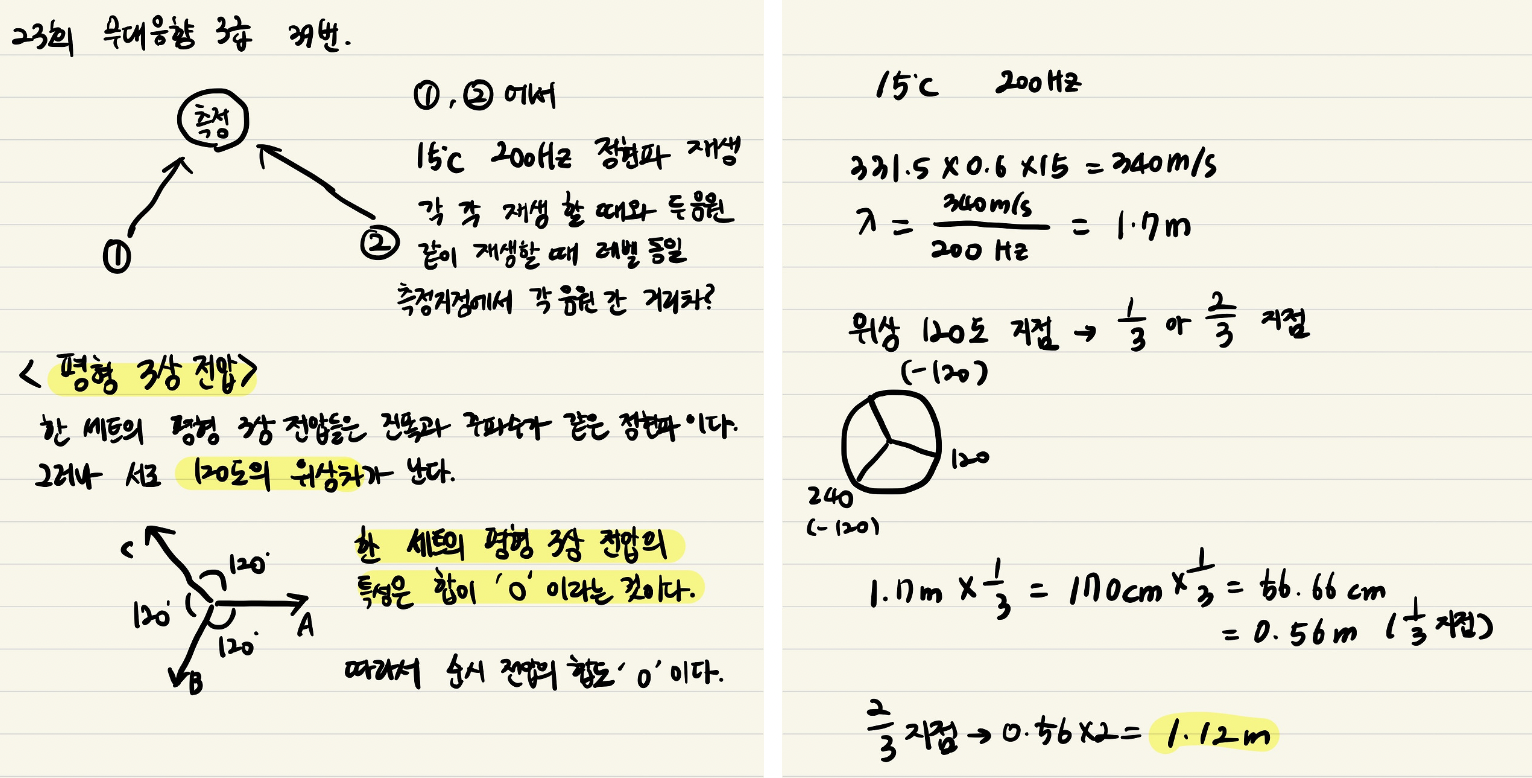 23회 무대음향 3급 39번.
측정
①
②
①, ② 에서
15°C 200Hz 정현파 재생
각 각 재생 할 때와 두음원
같이 재생할 때 레벨 동일
측정지점에서 각 음원 간 거리차?
< 평형 3상 전압>
한 세트의 평형 3상 전압들은 진폭과 주파수가 같은 정현파 이다.
그러나 서로 120도의 위상차가 난다.
C
120°
120°
120°
A
B
한 세트의 평형 3상 전압의
특성은 합이 '0' 이라는 것이다.
따라서 순시 전압의 합도 '0' 이다.
15°C 200Hz
331.5 × 0.6 × 15 = 340m/s
λ = 340m/s / 200 Hz = 1.7m
위상 120도 지점 → 1/3 or 2/3 지점
(-120)
120
240
(-120)
1.7m × 1/3 = 170cm × 1/3 = 56.66 cm
= 0.56m (1/3 지점)
2/3 지점 → 0.56×2 = 1.12m